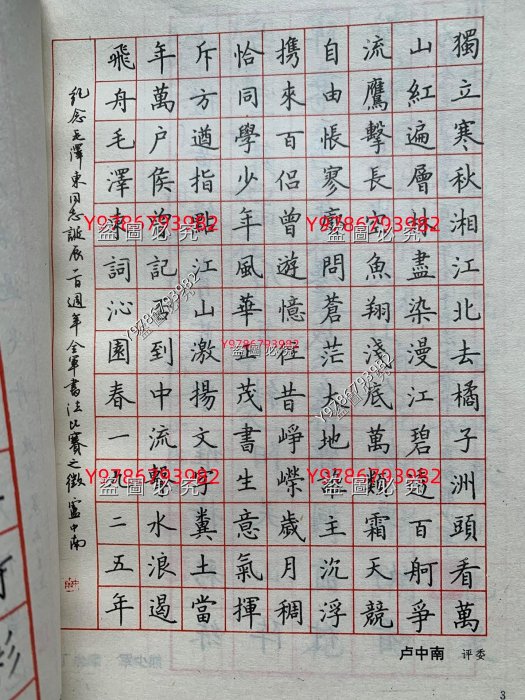 獨立寒秋湘江北去橘子洲頭看萬
山紅遍層林盡染漫江碧透百舸爭
流鷹擊長空魚翔淺底萬類霜天競
自由悵寥廓問蒼茫大地誰主沉浮
携來百侶曾遊憶往昔崢嶸歲月稠
恰同學少年風華正茂書生意氣揮
斥方遒指點江山激揚文字糞土當
年萬户侯曾記否到中流擊水浪遏
飛舟毛澤東詞沁園春一九二五年
紀念毛澤東同志誕辰一百週年全軍書法比賽之徵 盧中南
卢中南 评委
3
Y9786793982
盗圖必究
Y9786793982
盗圖必究
Y9786793982
盗圖必究
Y9786793982
盗圖必究
Y9786793982
盗圖必究
Y9786793982
盗圖必究
Y9786793982
盗圖必究